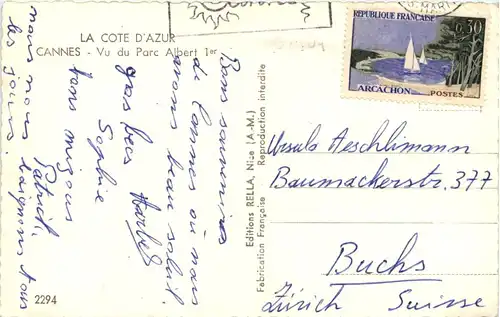 LA COTE D'AZUR
CANNES - Vu du Parc Albert 1er
Bons souvenirs
de Cannes où nous
avons beau soleil
nous nous baignons tous
les jours
gros becs
Sophie
Patrick
2294
Editions RELLA, Nice (A.-M.)
Fabrication Française
Reproduction interdite
REPUBLIQUE FRANÇAISE
0,30
ARCACHON
POSTES
Ursula Aeschlimann
Baumackerstr. 377
Buchs
Zürich Suisse